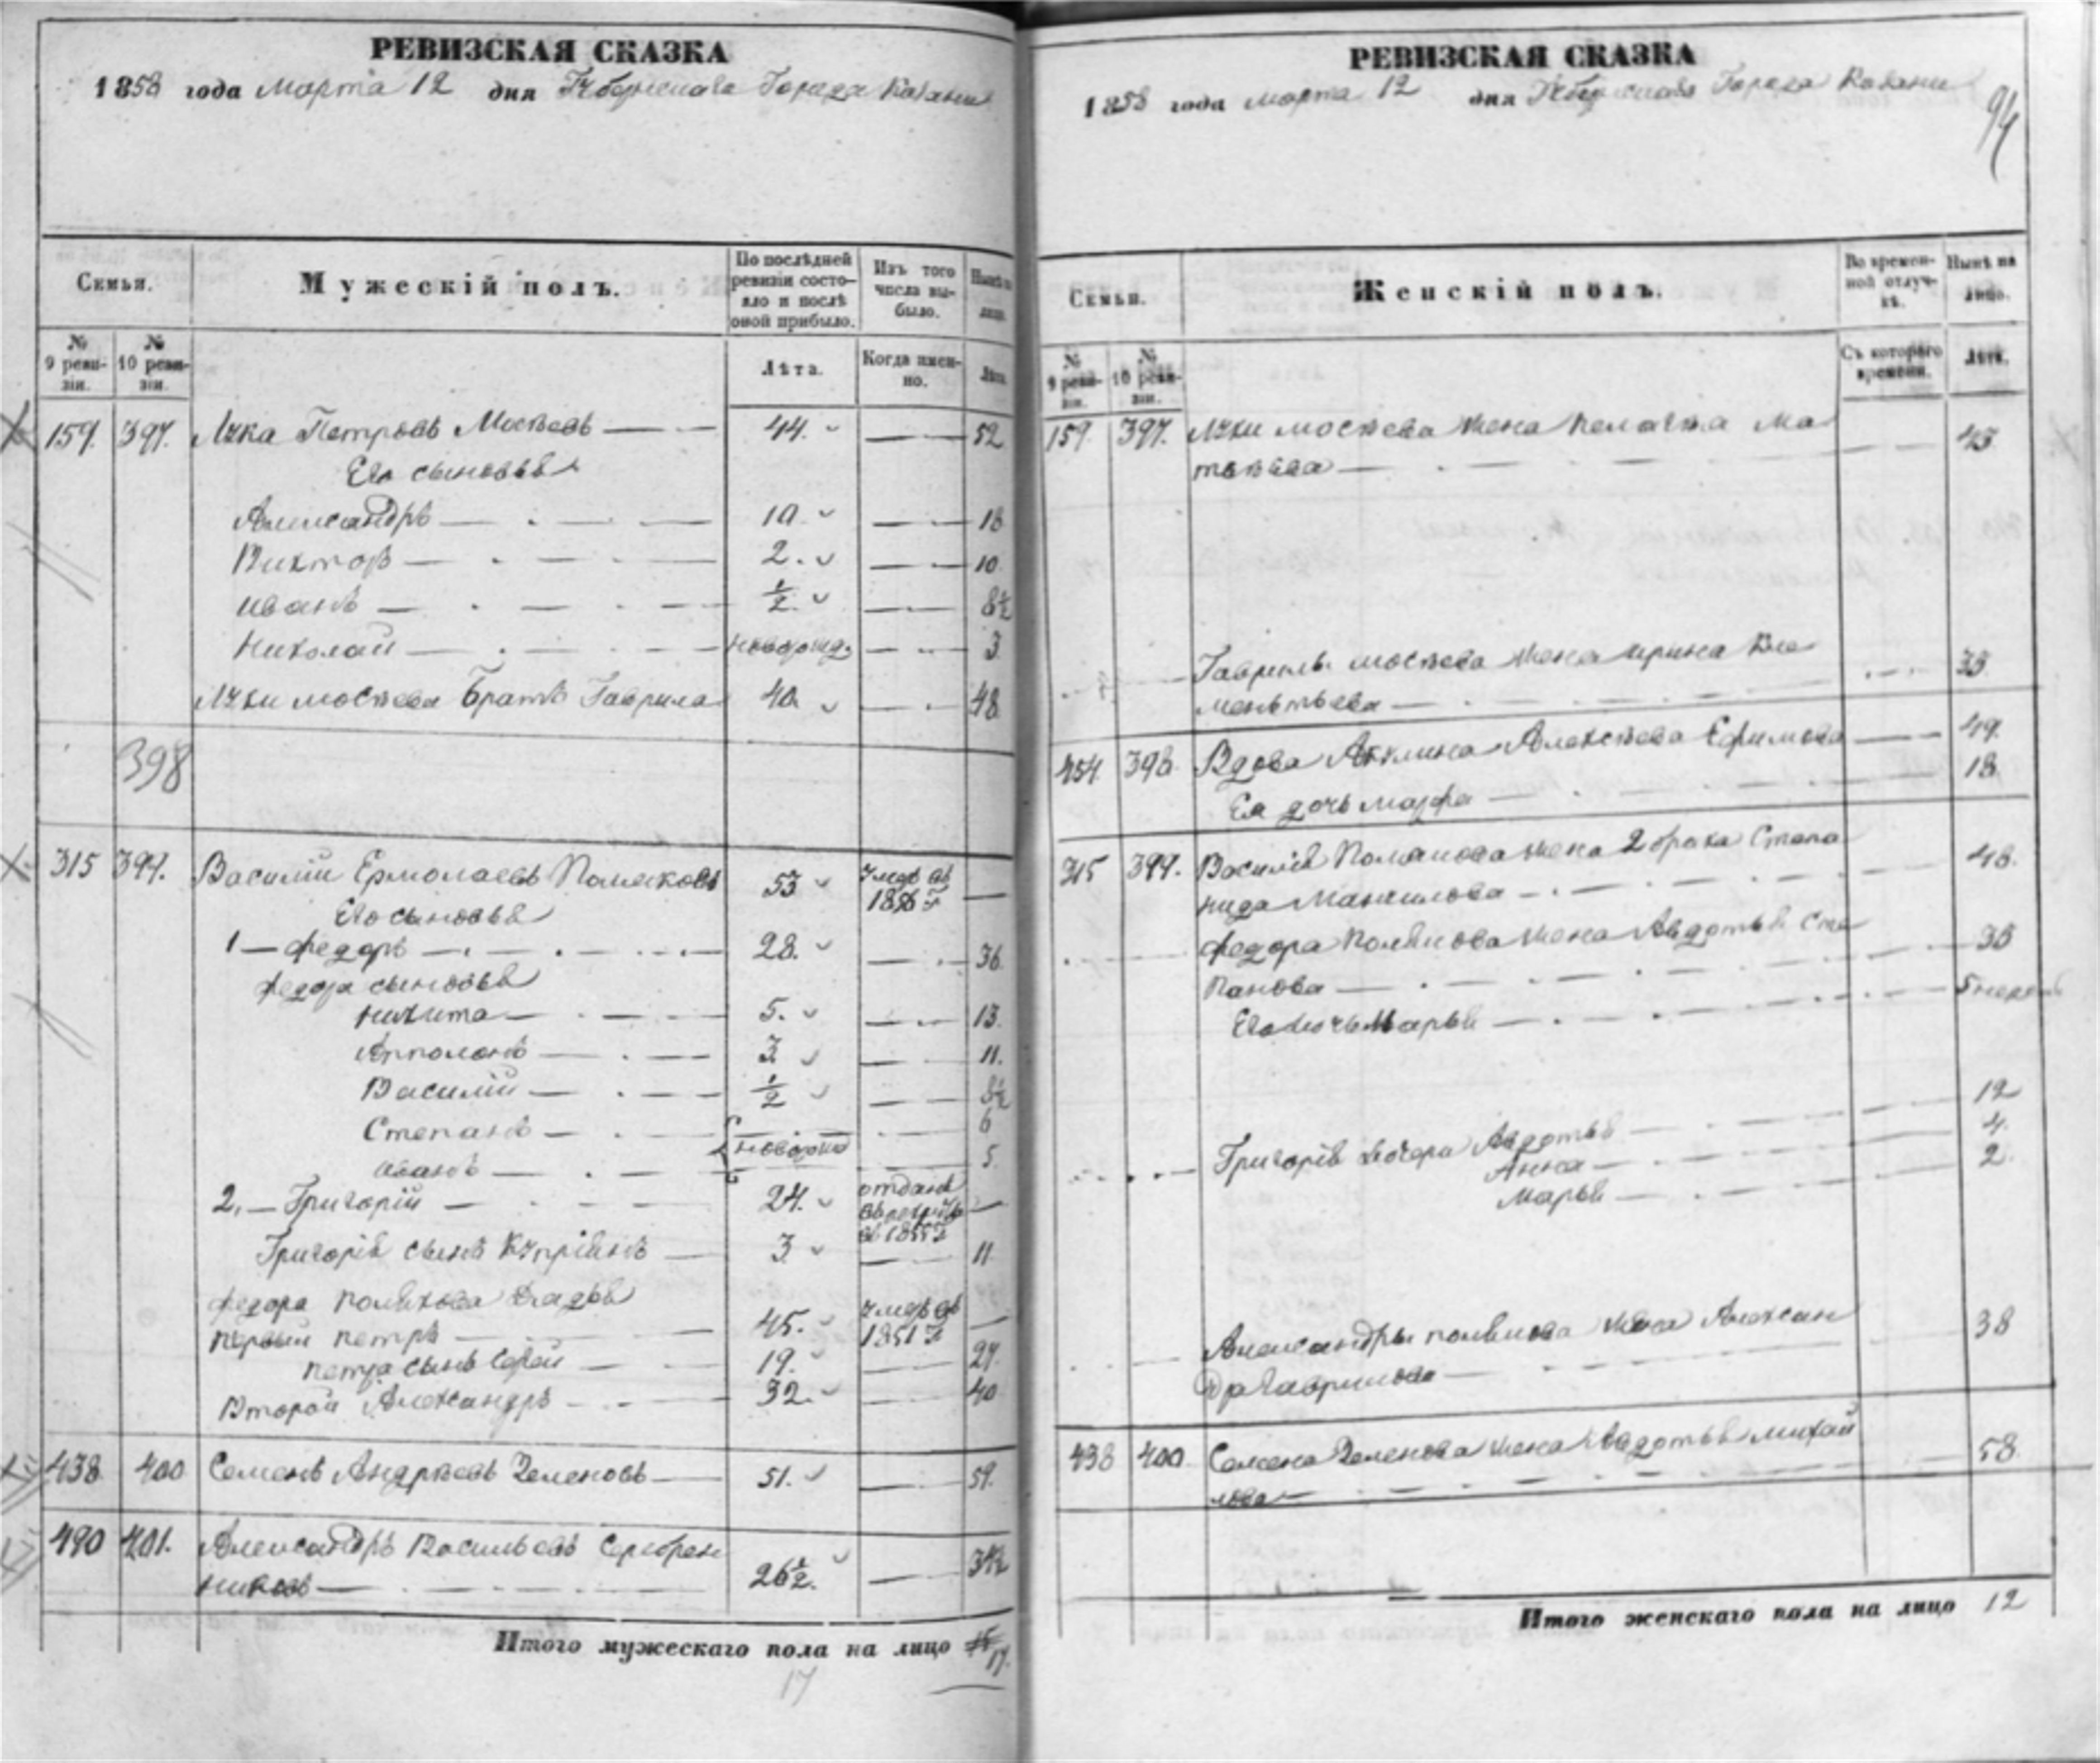 РЕВИЗСКАЯ СКАЗКА
1858 года Марта 12 дня Губернскаго Города Казани
Семьи.
Мужескій полъ.
По послѣдней ревизіи состояло и послѣ оной прибыло.
Изъ того числа выбыло.
Нынѣ на лицо.
№ 9 ревизіи.
№ 10 ревизіи.
Лѣта.
Когда именно.
Лѣта.
159. 397. Лука Петровъ Мосѣевъ 44. 52
Его сыновья
Александръ 10. 18
Викторъ 2. 10.
Иванъ ½. 8½
Николай новорожд. 3
Луки Мосѣева Братъ Гаврила 40 48
398
315 399. Василій Ермолаевъ Поляковъ 53 умеръ въ
Его сыновья
1 — Федоръ 28. 36
Федора сыновья
Никита 5. 13.
Апполонъ 3. 11.
Василій ½ 8½
Степанъ 6
новорож
Иванъ 5.
2. — Григорій 24. отданъ
въ рекруты
въ 1855 г
Григорія сынъ Купріянъ 3 11
Федора Полякова дядья
Первый Петръ 45. умеръ въ
1851 г
Петра сынъ Сергей 19. 27
Второй Александръ 32. 40
438 400 Семенъ Андрѣевъ Зеленовъ 51. 59.
490 401. Александръ Васильевъ Серебрен
никовъ 26½. 34½
Итого мужескаго пола на лицо 17.
17
РЕВИЗСКАЯ СКАЗКА
1858 года Марта 12 дня Губернскаго Города Казани
94
Семьи.
Женскій полъ.
Во временной отлучкѣ.
Нынѣ на лицо.
№ 9 ревизіи.
№ 10 ревизіи.
Съ котораго времени.
Лѣта.
159. 397. Луки Мосѣева жена Пелагѣя Ма
твѣева 43
Гаврилы Мосѣева жена Ирина Кле
ментьева
454. 398. Вдова Акулина Алексѣева Ефимова 49.
Ея дочь Марфа 18
315 399. Василія Полякова жена 2 брака Степа
нида Мануилова 48.
Федора Полякова жена Авдотья Сте
панова
Его дочь Марья
Григорія дочери Авдотья 12
Анна 4.
Марья 2.
Александры Полякова жена Алексан
дра Гаврилова 38
438 400 Семена Зеленова жена Авдотья Михай
лова 58.
Итого женскаго пола на лицо 12